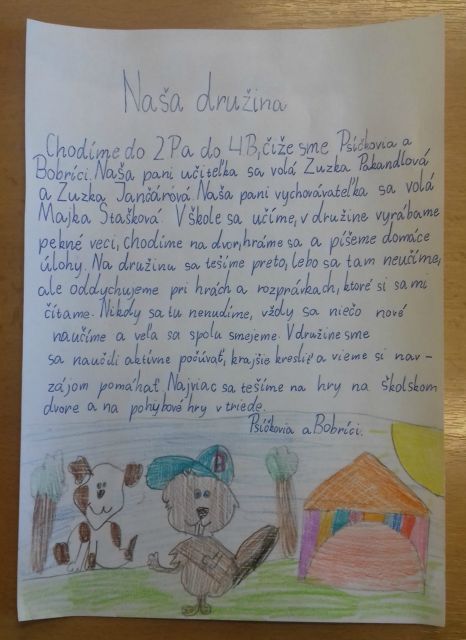 Naša družina
Chodíme do 2.P a do 4.B, čiže sme Psíčkovia a
Bobríci. Naša pani učiteľka sa volá Zuzka Pakandlová
a Zuzka Jančárová. Naša pani vychovávateľka sa volá
Majka Štašková. V škole sa učíme, v družine vyrábame
pekné veci, chodíme na dvor, hráme sa a píšeme domáce
úlohy. Na družinu sa tešíme preto, lebo sa tam neučíme,
ale oddychujeme pri hrách a rozprávkach, ktoré si sami
čítame. Nikdy sa tu nenudíme, vždy sa niečo nové
naučíme a veľa sa spolu smejeme. V družine sme
sa naučili aktívne počúvať, krajšie kresliť a vieme si nav-
zájom pomáhať. Najviac sa tešíme na hry na školskom
dvore a na pohybové hry v triede.
Psíčkovia a Bobríci.
B